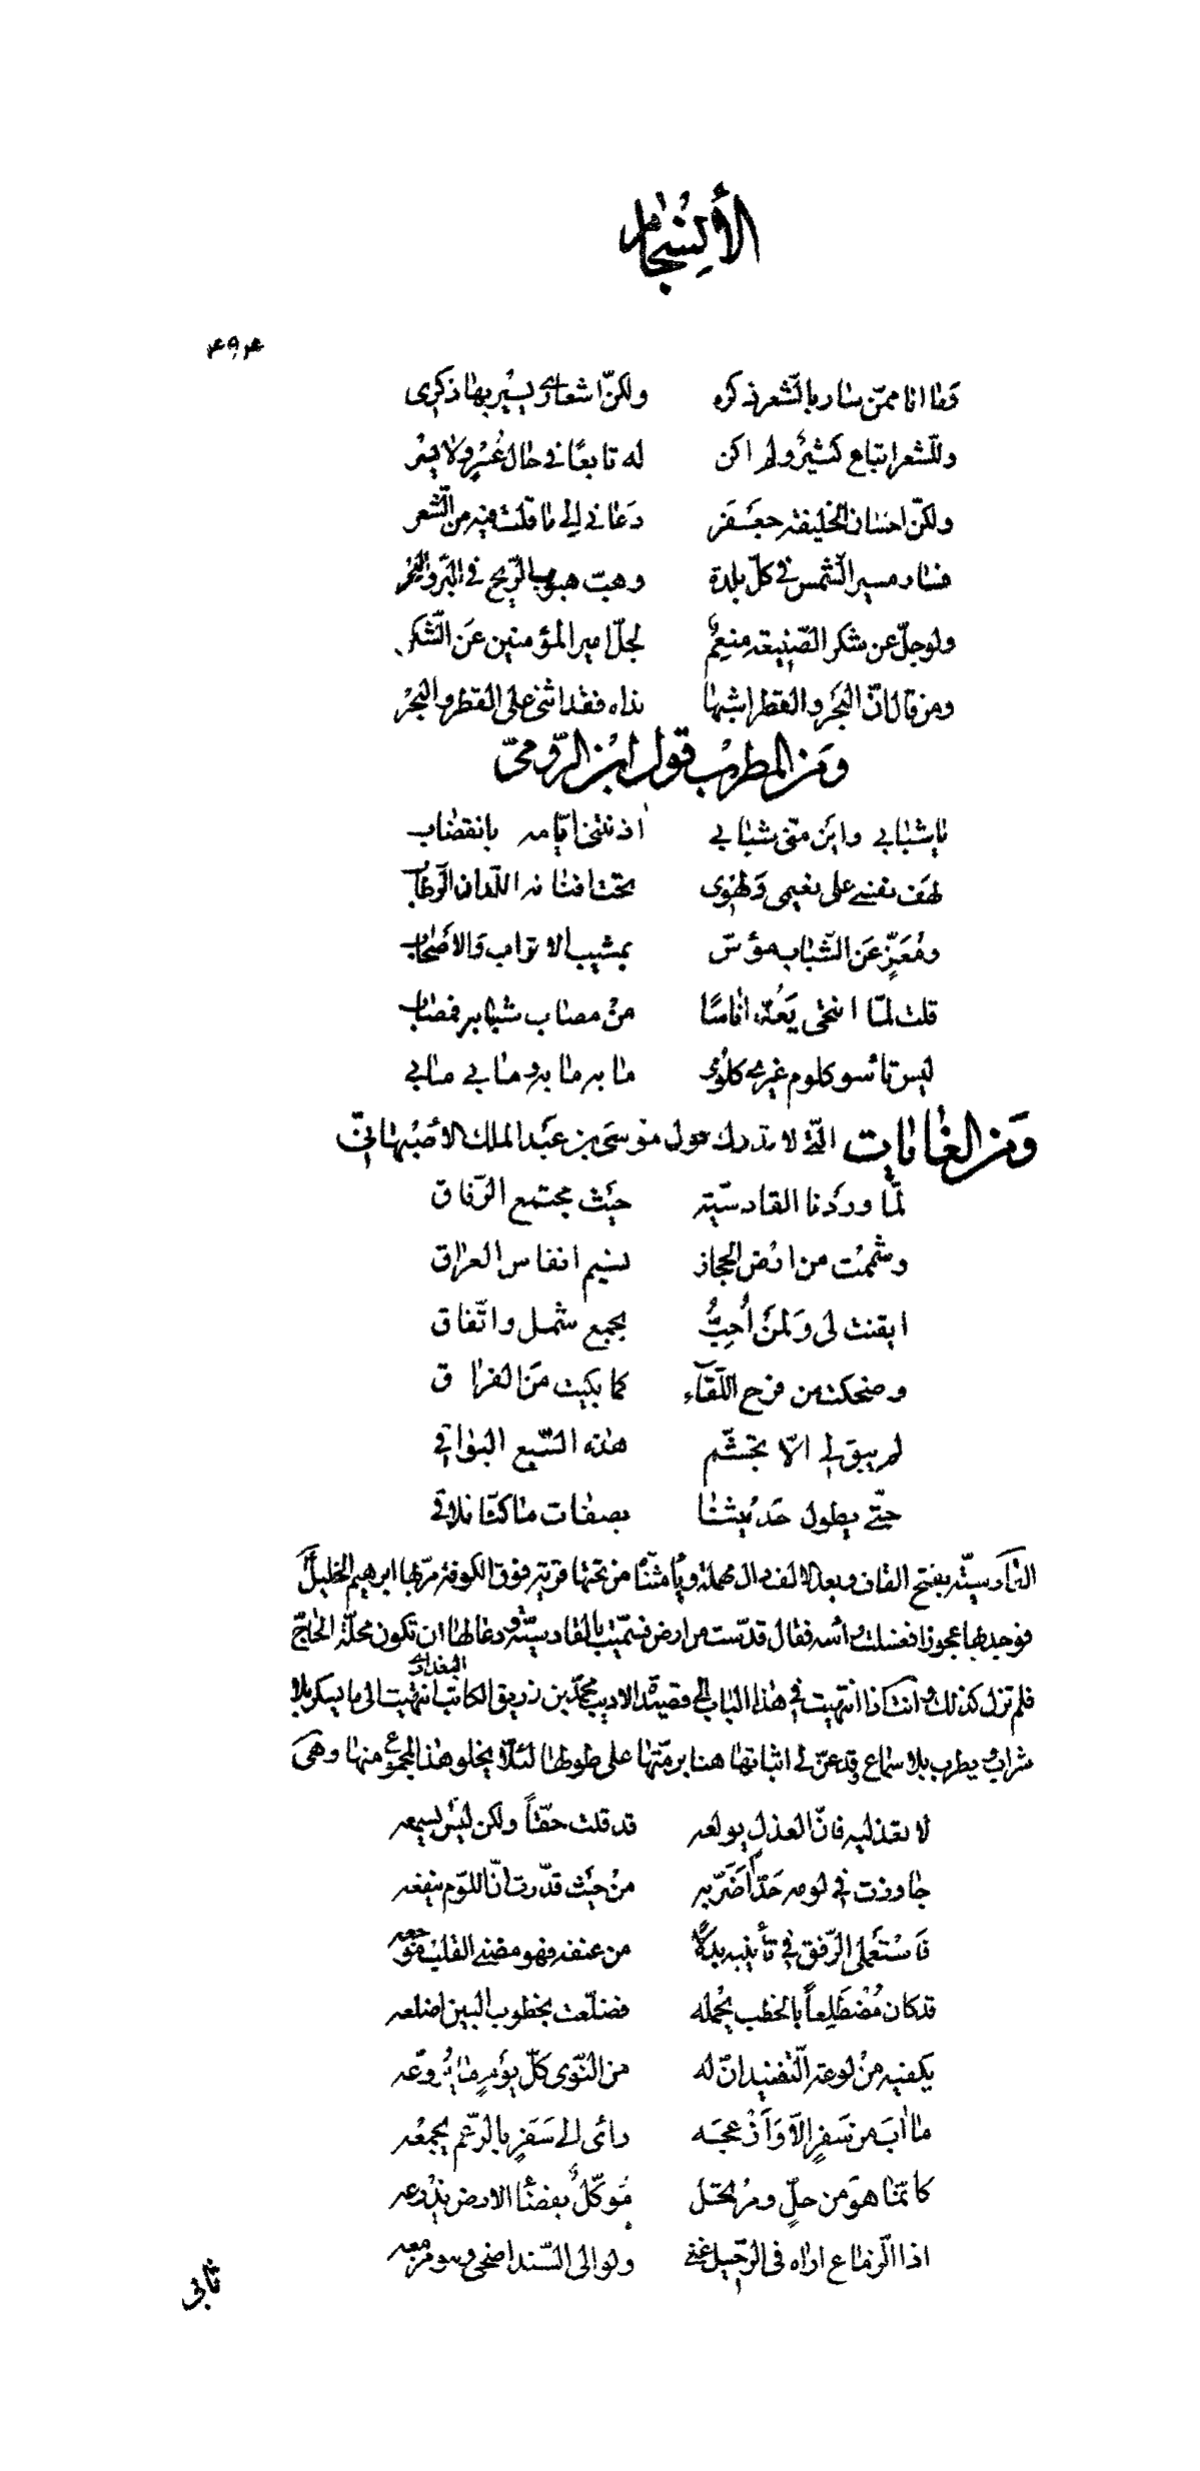 الأنسجام
٤٩٤
وما انا ممّن سار بالشّعر ذكره ولكنّ اشعارى يسير بها ذكرى
وللشّعر اتباع كثير ولم اكن له تابعًا فى حال عُسْرٍ ولا يسر
ولكنّ احسان الخليفة جعفر دعانى الى ما قلت فيه من الشّعر
فسار مسير الشّمس فى كلّ بلدة وهبّ هبوب الرّيح فى البرّ والبحر
ولو جلّ عن شكر الصّنيعة منعمٌ لجلّ امير المؤمنين عن الشّكر
ومن قال انّ البحر والقطر اشبها نداه فقد اثنى على القطر والبحر
ومن المطرب قول ابن الرّومىّ
يا شبابى واين منّى شبابى اذنتنى ايّامه بانقضاب
لهف نفسى على نعيمى ولهوى تحت افنانه اللّدان الرّطاب
ومُعَزٍّ عن الشّباب مؤسّ بمشيب الاتراب والأصحاب
قلت لمّا انتحى يَعُدّ اناسًا من مصاب شبابه فمصاب
ليس تأسو كلوم غيرى كلومى ما به ما به وما بى ما بى
ومن الغايات الّتى لا تدرك قول موسى بن عبد الملك الأصبهانىّ
لمّا وردنا القادسيّة حيث مجتمع الرّفاق
وشممت من ارض الحجاز نسيم انفاس العراق
ايقنت لى ولمن أُحِبُّ بجمع شمل واتّفاق
وضحكت من فرح اللّقاء كما بكيت من الفراق
لم يبق لى الّا تجشّم هذه السّبع البواقى
حتّى يطول حديثنا بصفات ما كنّا نلاقى
القادسيّه بفتح القاف وبعد الالف دال مهملة ويا مثنّا من تحتها قرية فوق الكوفة مرّ بها ابرهيم الخليل
فوجد بها عجوزا فغسلت رأسه فقال قدّست من ارض فسمّيت بالقادسيّة ودعا لها ان تكون محلّة الحاجّ
فلم تزل كذلك وانت اذا انتهيت فى هذا الباب الى قصيدة الاديب محمّد بن زريق الكاتب البغدادى انتهيت الى ما يسكر بلا
شراب ويطرب بلا سماع وقد عنّ لى اثباتها هنا برمّتها على طولها لئلّا يخلو هذا المجموع منها وهى
لا تعذليه فانّ العذل يولعه قد قلت حقّاً ولكن ليس يسمعه
جاوزت فى لومه حدّا اضرّ به من حيث قدّرت انّ اللوم ينفعه
فاستعملى الرّفق فى تأنيبه بدلًا من عنفه فهو مضنى القلب موجعه
قد كان مُضْطَلِعاً بالخطب يحمله فضلّعت بخطوب البين اضلعه
يكفيه من لوعة التّفنيد انّ له من النّوى كلّ يومٍ ما يُروّعه
ما اب من سَفَرٍ الّا وازعجه رأى الى سَفَرٍ بالرّغم يجمعه
كأنّما هو من حلٍّ ومرتحل مُوكّلٌ بفضا الارض يذرعه
اذا الزّماع اراه فى الرّحيل غنى ولو الى السّند اضحى وهو مزمعه
تأبى